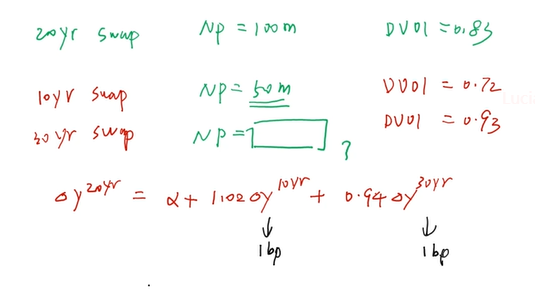 20yr swap NP = 100m DV01 = 0.83
10yr swap NP = 50m DV01 = 0.72
30yr swap NP = ? DV01 = 0.93
Δy^20yr = α + 1.02Δy^10yr + 0.94Δy^30yr
↓ ↓
1bp 1bp